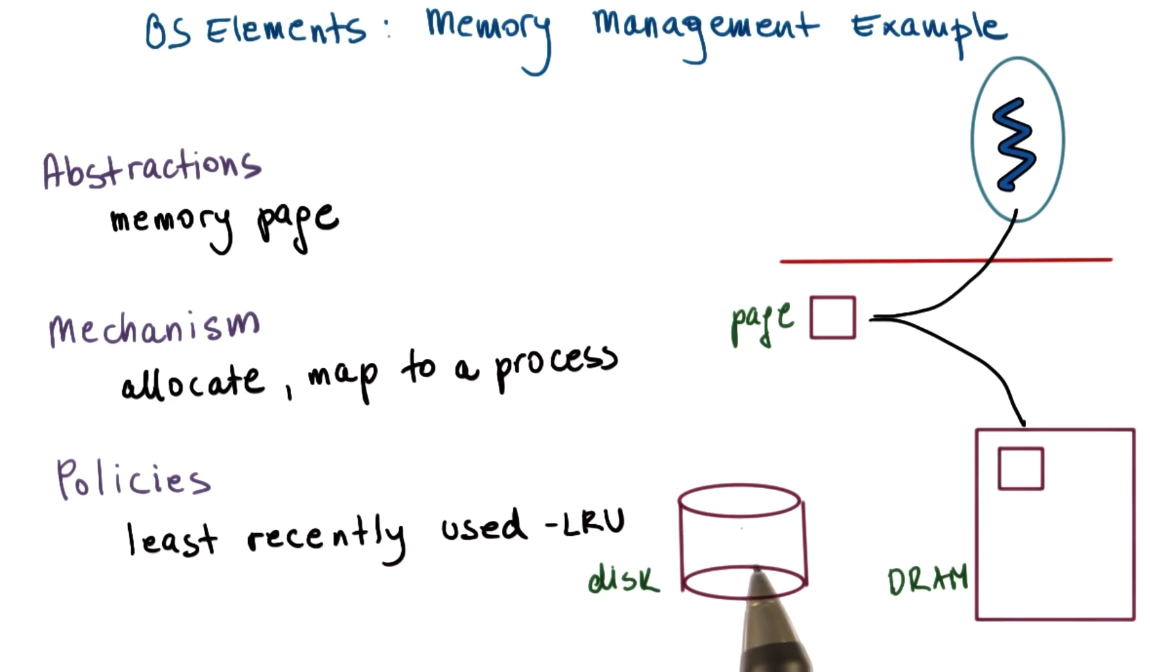 OS Elements: Memory Management Example
Abstractions
memory page
page
Mechanism
allocate, map to a process
Policies
least recently used -LRU
disk
DRAM